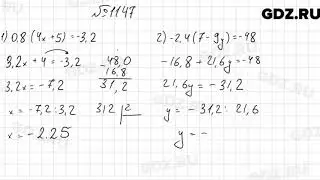 GDZ.RU
№ 1147
1) 0,8(4x+5)=-3,2
3,2x+4=-3,2
3,2x=-7,2
x=-7,2:3,2
x=-2.25
-48,0
16,8
31,2
312 |2
2) -2,4(7-9y)=-48
-16,8+21,6y=-48
21,6y=-31,2
y=-31,2:21,6
y=-